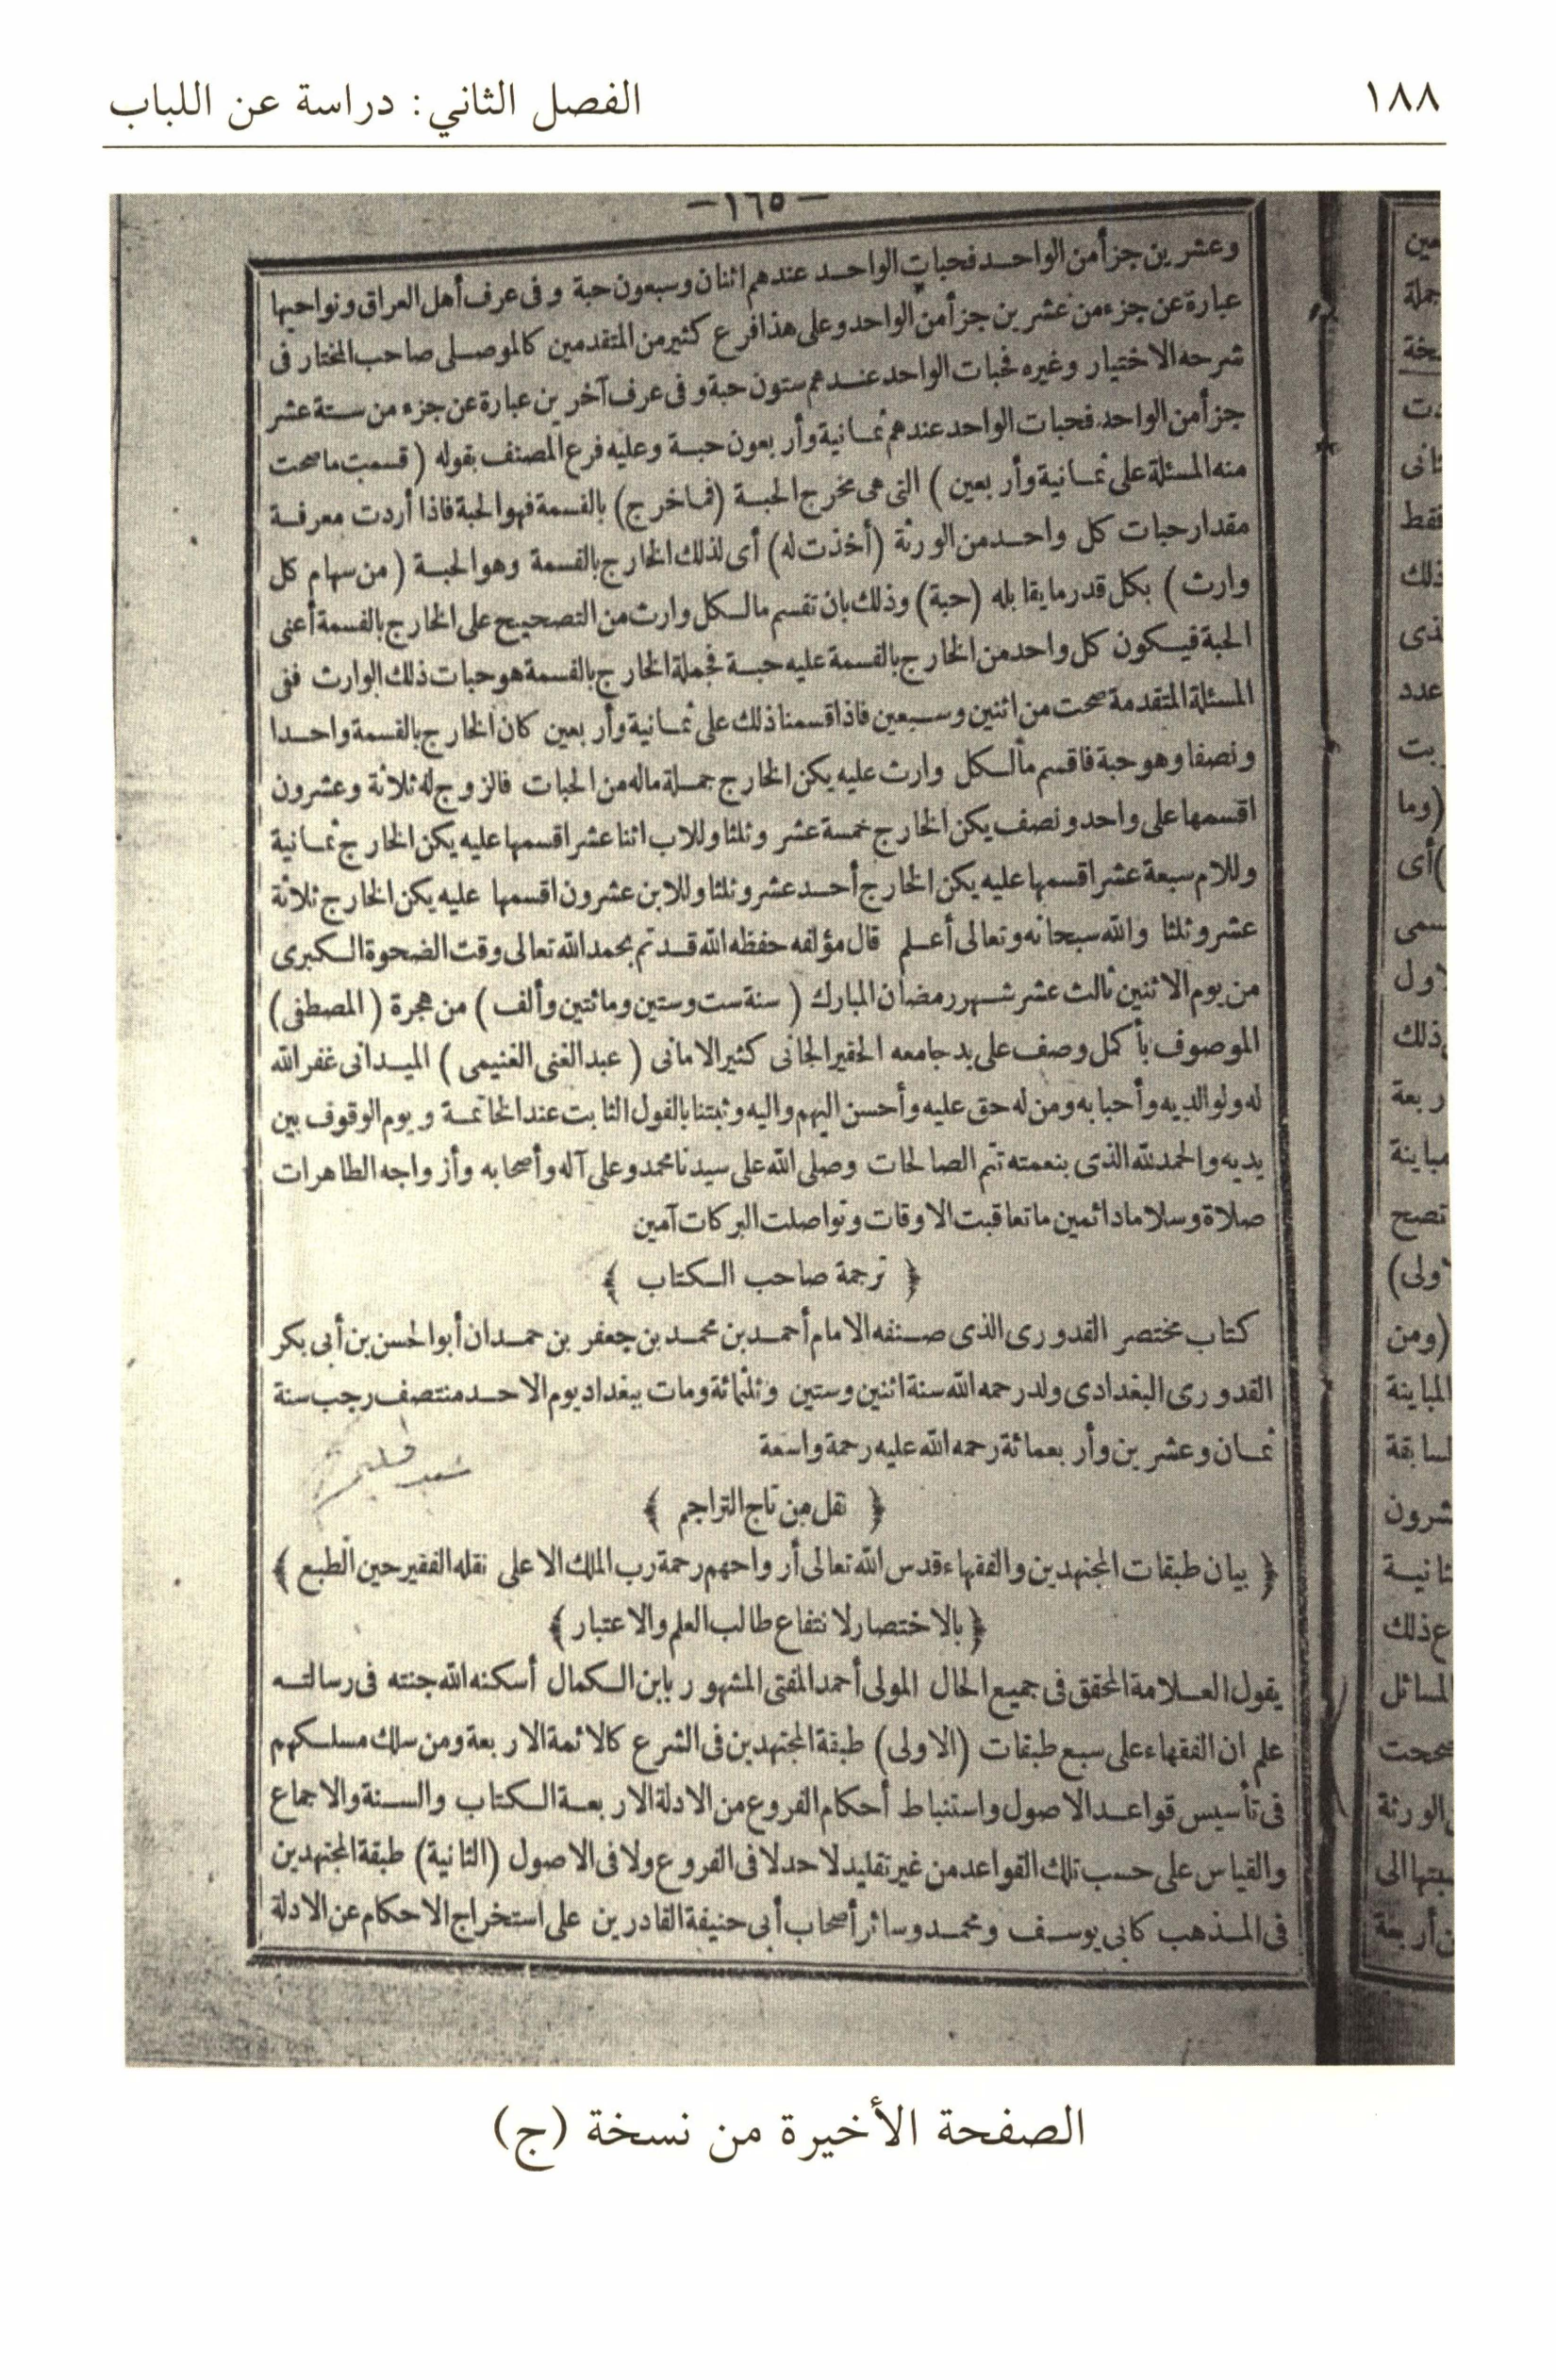 ١٨٨
الفصل الثاني: دراسة عن اللباب
— ١٦٥ —
وعشرين جزأ من الواحد فحبات الواحد عندهم اثنان وسبعون حبة وفى عرف أهل العراق ونواحيها
عبارة عن جزء من عشرين جزأ من الواحد وعلى هذا فرع كثير من المتقدمين كالموصلى صاحب المختار فى
شرحه الاختيار وغيره فحبات الواحد عندهم ستون حبة وفى عرف آخرين عبارة عن جزء من ستة عشر
جزأ من الواحد فحبات الواحد عندهم ثمانية وأربعون حبة وعليه فرع المصنف بقوله (قسمت ما صحت
منه المسئلة على ثمانية وأربعين) التى هى مخرج الحبة (فما خرج) بالقسمة فهو الحبة فاذا أردت معرفة
مقدار حبات كل واحد من الورثة (أخذت له) أى لذلك الخارج بالقسمة وهو الحبة (من سهام كل
وارث) بكل قدر ما يقابله (حبة) وذلك بان تقسم ما لكل وارث من التصحيح على الخارج بالقسمة أعنى
الحبة فيكون كل واحد من الخارج بالقسمة عليه حبة فجملة الخارج بالقسمة هو حبات ذلك الوارث ففى
المسئلة المتقدمة صحت من اثنين وسبعين فاذا قسمنا ذلك على ثمانية وأربعين كان الخارج بالقسمة واحدا
ونصفا وهو حبة فاقسم ما لكل وارث عليه يكن الخارج جملة ماله من الحبات فالزوج له ثلاثة وعشرون
اقسمها على واحد ونصف يكن الخارج خمسة عشر وثلثا وللاب اثنا عشر اقسمها عليه يكن الخارج ثمانية
وللام سبعة عشر اقسمها عليه يكن الخارج أحد عشر وثلثا وللابن عشرون اقسمها عليه يكن الخارج ثلاثة
عشر وثلثا والله سبحانه وتعالى أعلم قال مؤلفه حفظه الله قد تم بحمد الله تعالى وقت الضحوة الكبرى
من يوم الاثنين ثالث عشر شهر رمضان المبارك (سنة ست وستين ومائتين وألف) من هجرة (المصطفى)
الموصوف بأكمل وصف على يد جامعه الحقير الجانى كثير الامانى (عبد الغنى الغنيمى) الميدانى غفر الله
له ولوالديه وأحبابه ومن له حق عليه وأحسن اليهم واليه وثبتنا بالقول الثابت عند الخاتمة ويوم الوقوف بين
يديه والحمد لله الذى بنعمته تتم الصالحات وصلى الله على سيدنا محمد وعلى آله وأصحابه وأزواجه الطاهرات
صلاة وسلاما دائمين ما تعاقبت الاوقات وتواصلت البركات آمين
﴿ ترجمة صاحب الكتاب ﴾
كتاب مختصر القدورى الذى صنفه الامام أحمد بن محمد بن جعفر بن حمدان أبو الحسن بن أبى بكر
القدورى البغدادى ولد رحمه الله سنة اثنين وستين وثلثمائة ومات ببغداد يوم الاحد منتصف رجب سنة
ثمان وعشرين وأربعمائة رحمه الله عليه رحمة واسعة
﴿ نقل من تاج التراجم ﴾
﴿ بيان طبقات المجتهدين والفقهاء قدس الله تعالى أرواحهم رحمة رب الملك الاعلى نقله الفقير حين الطبع ﴾
﴿ بالاختصار لانتفاع طالب العلم والاعتبار ﴾
يقول العلامة المحقق فى جميع الحال المولى أحمد المفتى المشهور بابن الكمال أسكنه الله جنته فى رسالته
علم ان الفقهاء على سبع طبقات (الاولى) طبقة المجتهدين فى الشرع كالائمة الاربعة ومن سلك مسلكهم
فى تأسيس قواعد الاصول واستنباط أحكام الفروع من الادلة الاربعة الكتاب والسنة والاجماع
والقياس على حسب تلك القواعد من غير تقليد لاحد لا فى الفروع ولا فى الاصول (الثانية) طبقة المجتهدين
فى المذهب كابى يوسف ومحمد وسائر أصحاب أبى حنيفة القادرين على استخراج الاحكام عن الادلة
جملة
فقط
ذلك
عدد
(وما
)أى
ذلك
تصح
(ومن
المباينة
ع ذلك
الصفحة الأخيرة من نسخة (ج)